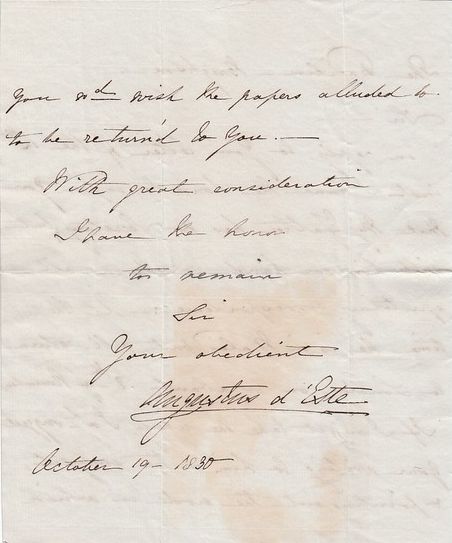 you wd wish the papers alluded to
to be return'd to you. —
With great consideration
I have the honor
to remain
Sir
Your obedient
Augustus d'Este
October 19 - 1830